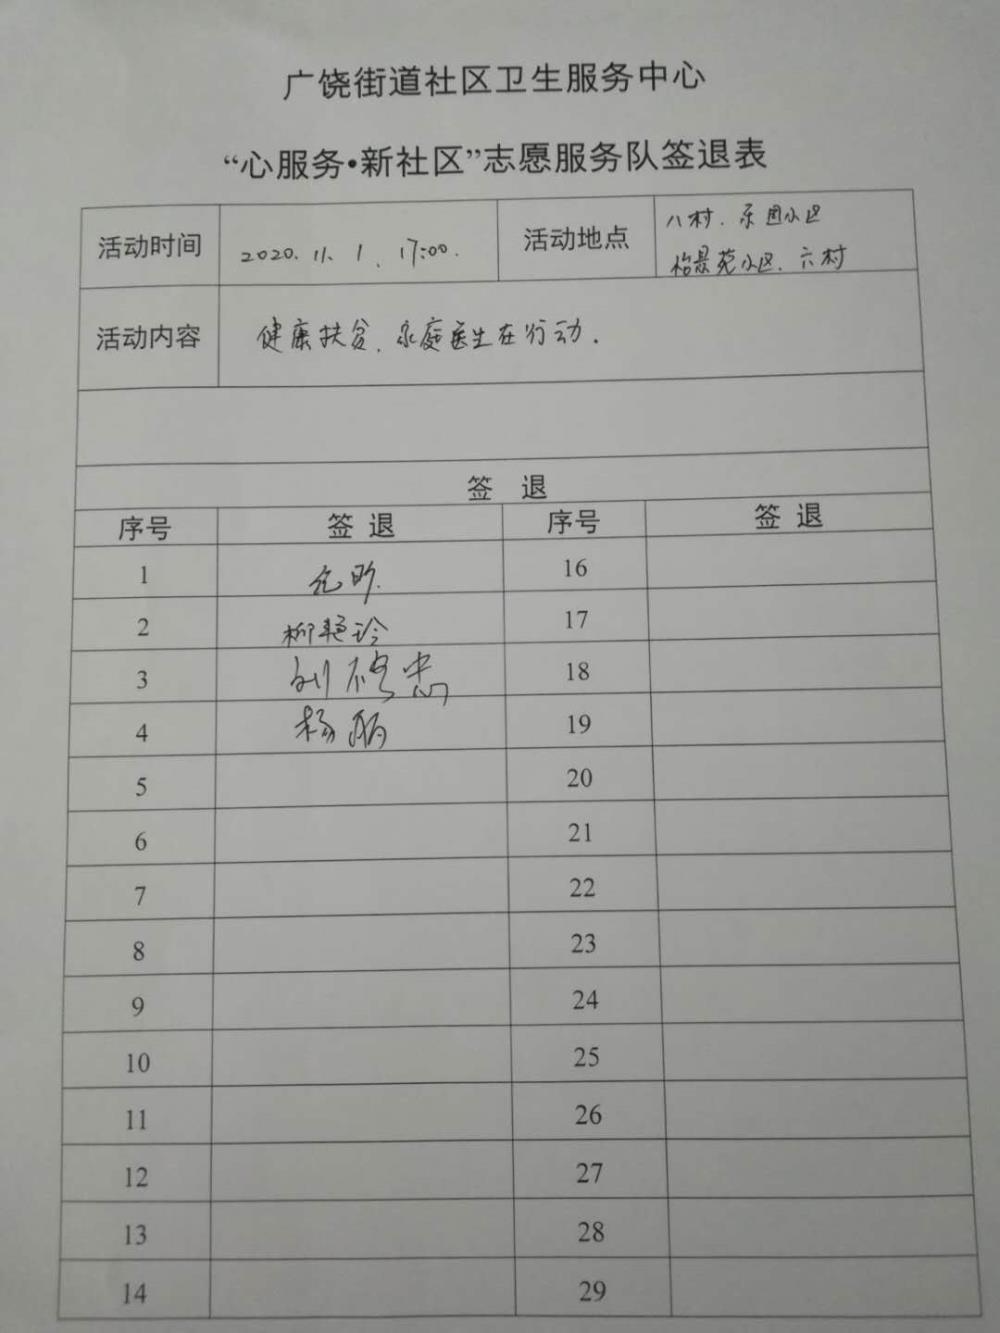 广饶街道社区卫生服务中心
“心服务•新社区”志愿服务队签退表
活动时间 2020.11.1.17:00. 活动地点 八村.乐园小区
怡景苑小区.六村
活动内容 健康扶贫.家庭医生在行动.
签 退
序号 签 退 序号 签 退
1 16
2 柳艳玲 17
3 刘修忠 18
4 杨丽 19
5 20
6 21
7 22
8 23
9 24
10 25
11 26
12 27
13 28
14 29